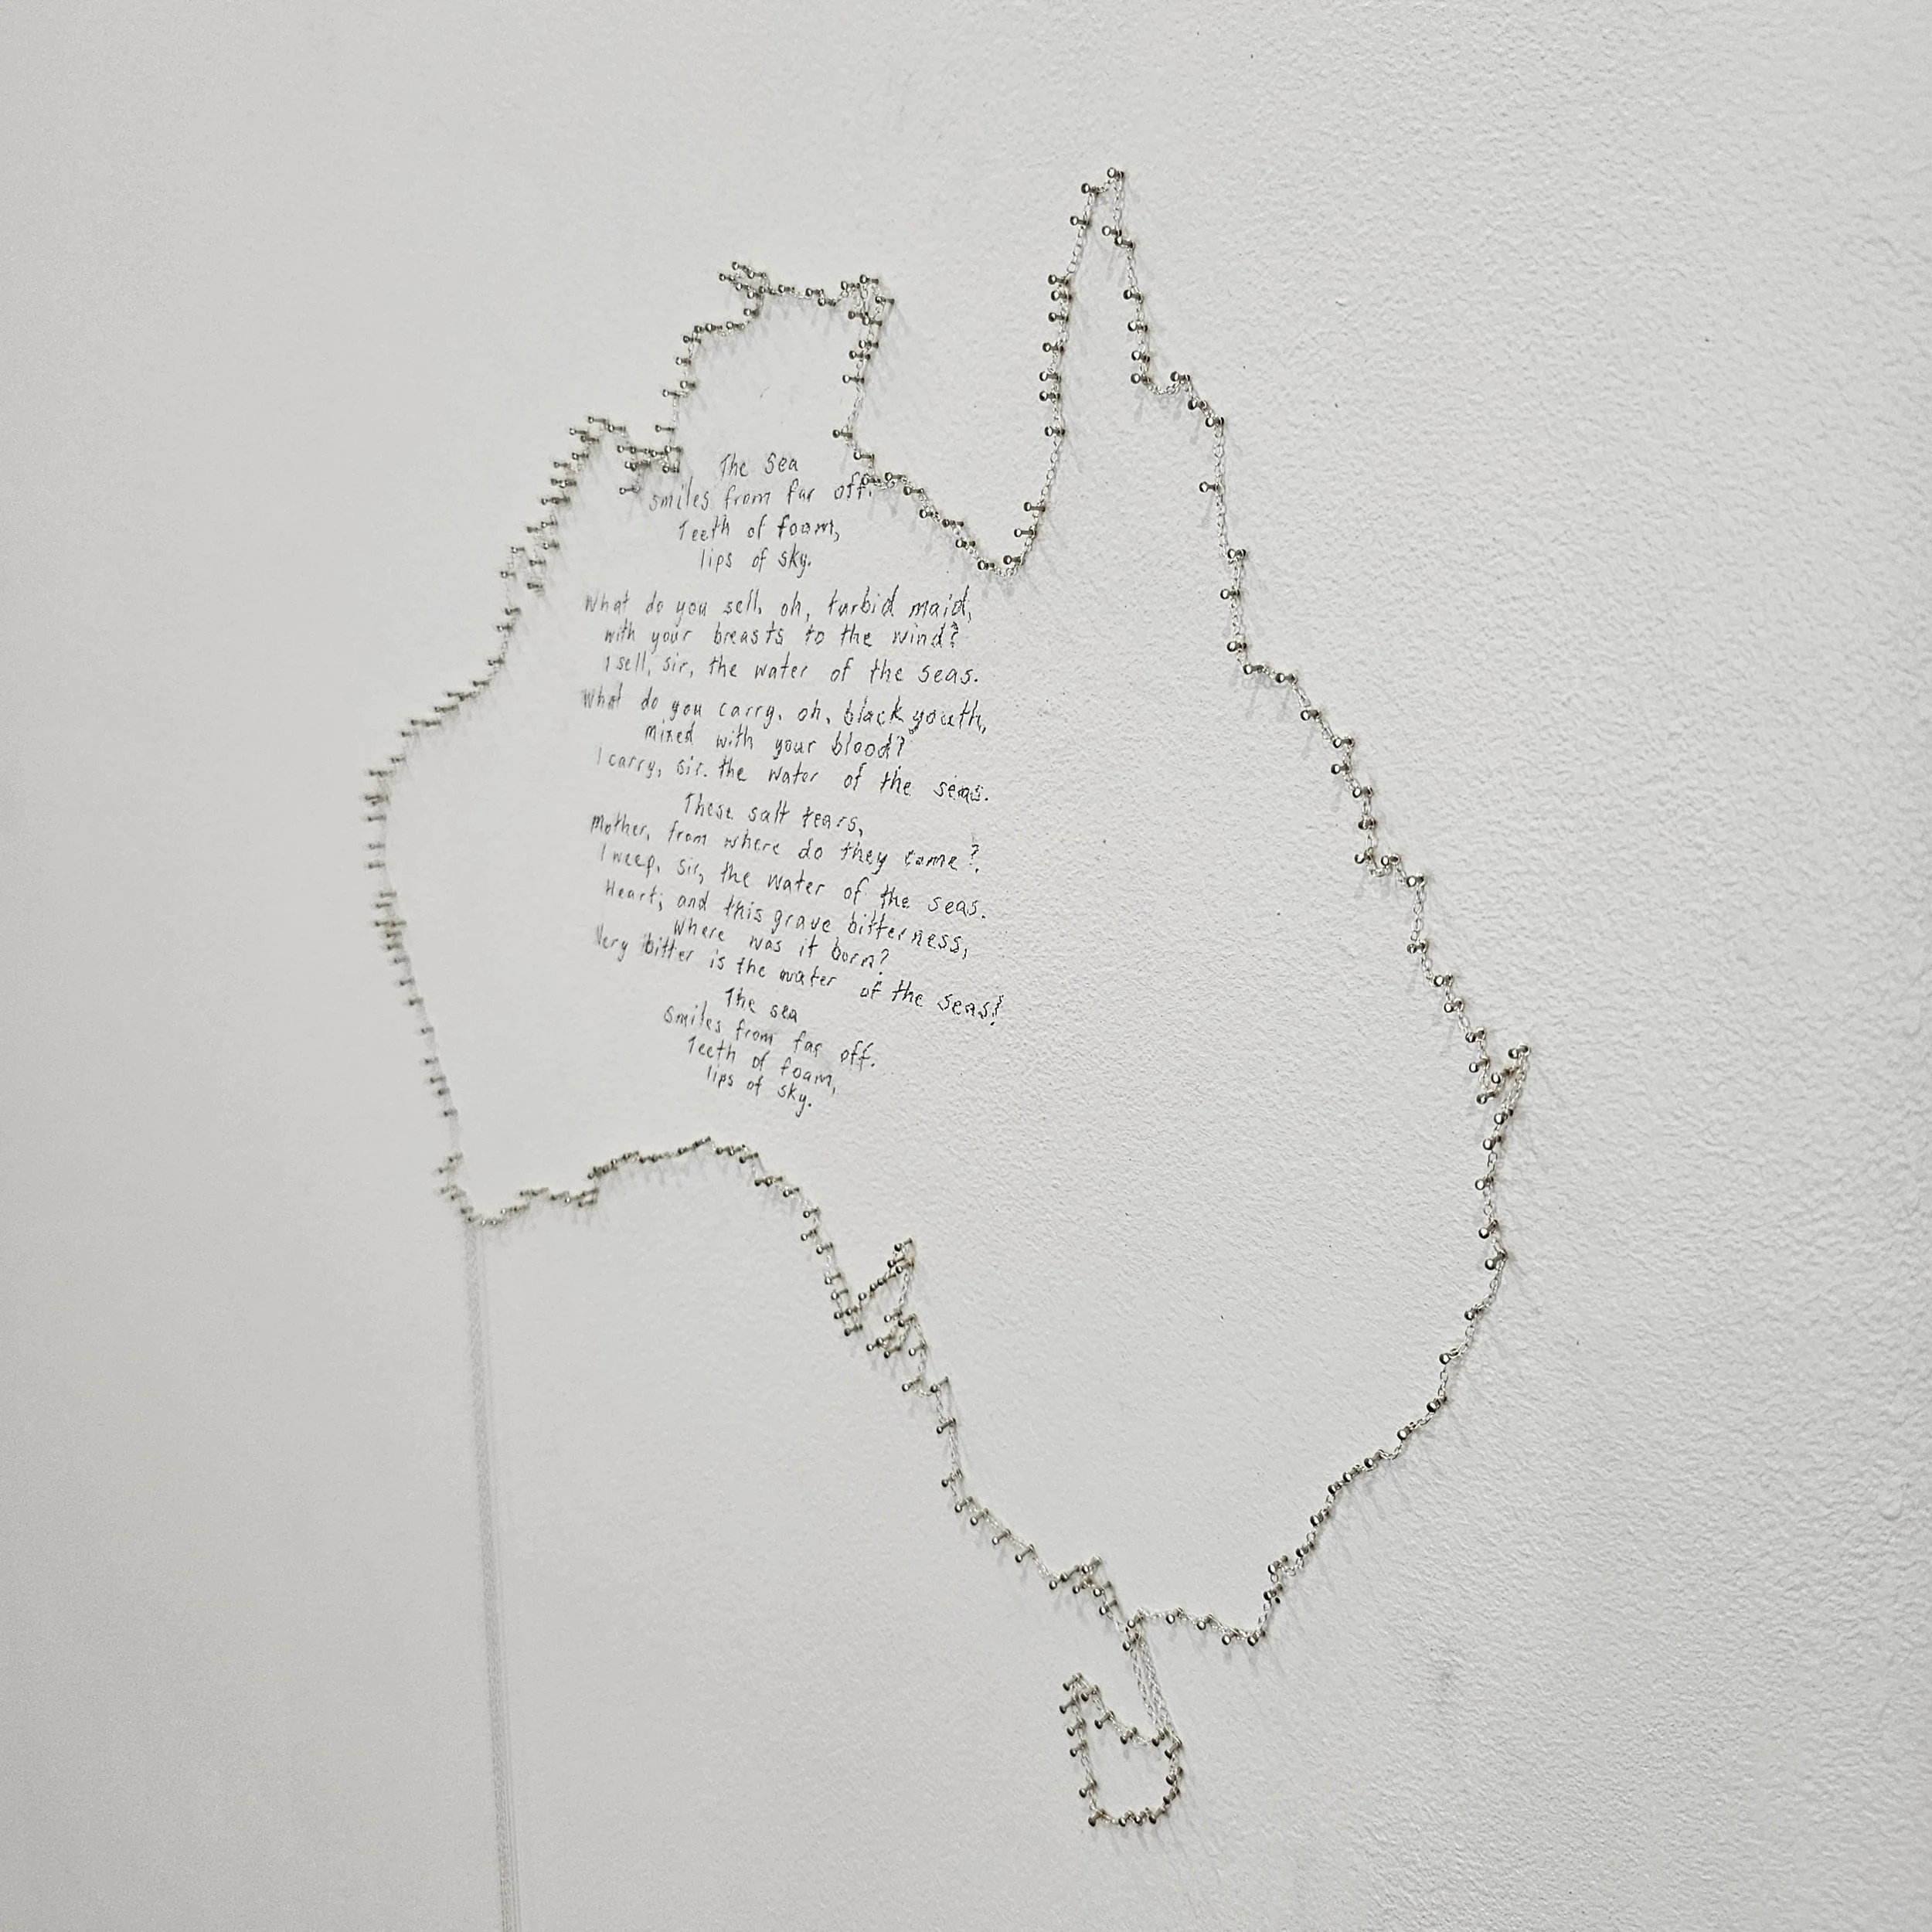 The Sea
smiles from far off.
Teeth of foam,
lips of sky.
What do you sell, oh, turbid maid,
with your breasts to the wind?
I sell, sir, the water of the seas.
What do you carry, oh, black youth,
mixed with your blood?
I carry, sir. the water of the seas.
These salt tears,
Mother, from where do they come?
I weep, sir, the water of the seas.
Heart; and this grave bitterness,
where was it born?
Very bitter is the water of the seas!
The sea
smiles from far off.
Teeth of foam,
lips of sky.